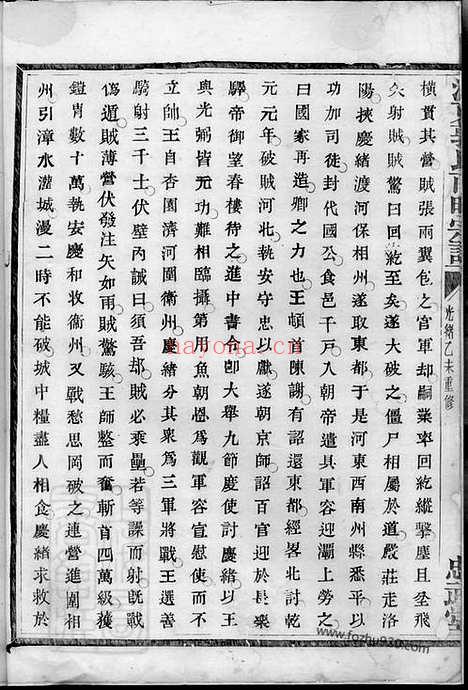 橫貫其營賊張兩翼包之官軍却嗣業率回紇縱擊塵且坌飛
矢射賊賊驚曰回紇至矣遂大破之僵尸相屬於道嚴莊走洛
陽挾慶緒渡河保相州遂取東都于是河東西南州縣悉平以
功加司徒封代國公食邑千戶入朝帝遣具軍容迎灞上勞之
曰國家再造卿之力也王頓首陳謝有詔還東都經畧北討乾
元元年破賊河上執安守忠以獻遂朝京師詔百官迎於長樂
驛帝御望春樓待之進中書令卽大舉九節度使討慶緒以王
與光弼皆有功難相臨攝第用魚朝恩爲觀軍容宣慰使而不
立帥王自杏園濟河圍衛州慶緒分其衆爲三軍將戰王選善
騎射三千士伏壁內誡曰須吾却賊必乘壘若等譟而射旣戰
僞遁賊薄營伏發注矢如雨賊驚駭王師整而奮斬首四萬級獲
鎧胄數十萬執安慶和收衛州又戰愁思岡破之連營進圍相
州引漳水灌城漫二時不能破城中糧盡人相食慶緒求救於
宗譜
光緒乙未重修
忠武堂
hayona.cn
www.fozhu920.com